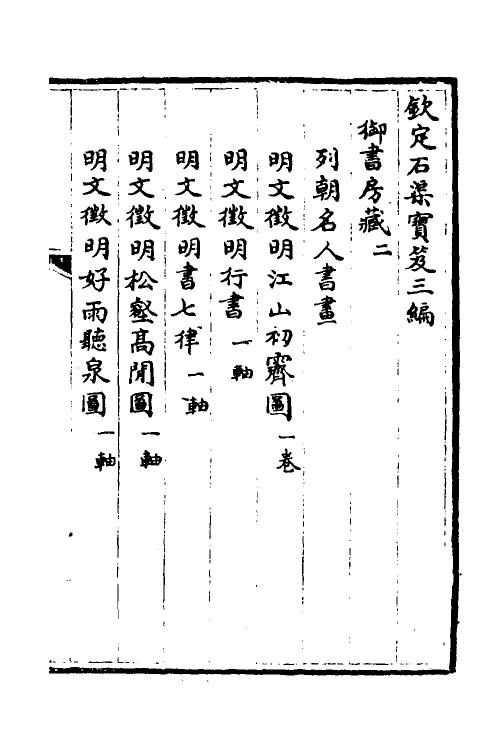 欽定石渠寶笈三編
御書房藏二
列朝名人書畫
明文徵明江山初霽圖一卷
明文徵明行書一軸
明文徵明書七律一軸
明文徵明松壑高閒圖一軸
明文徵明好雨聽泉圖一軸